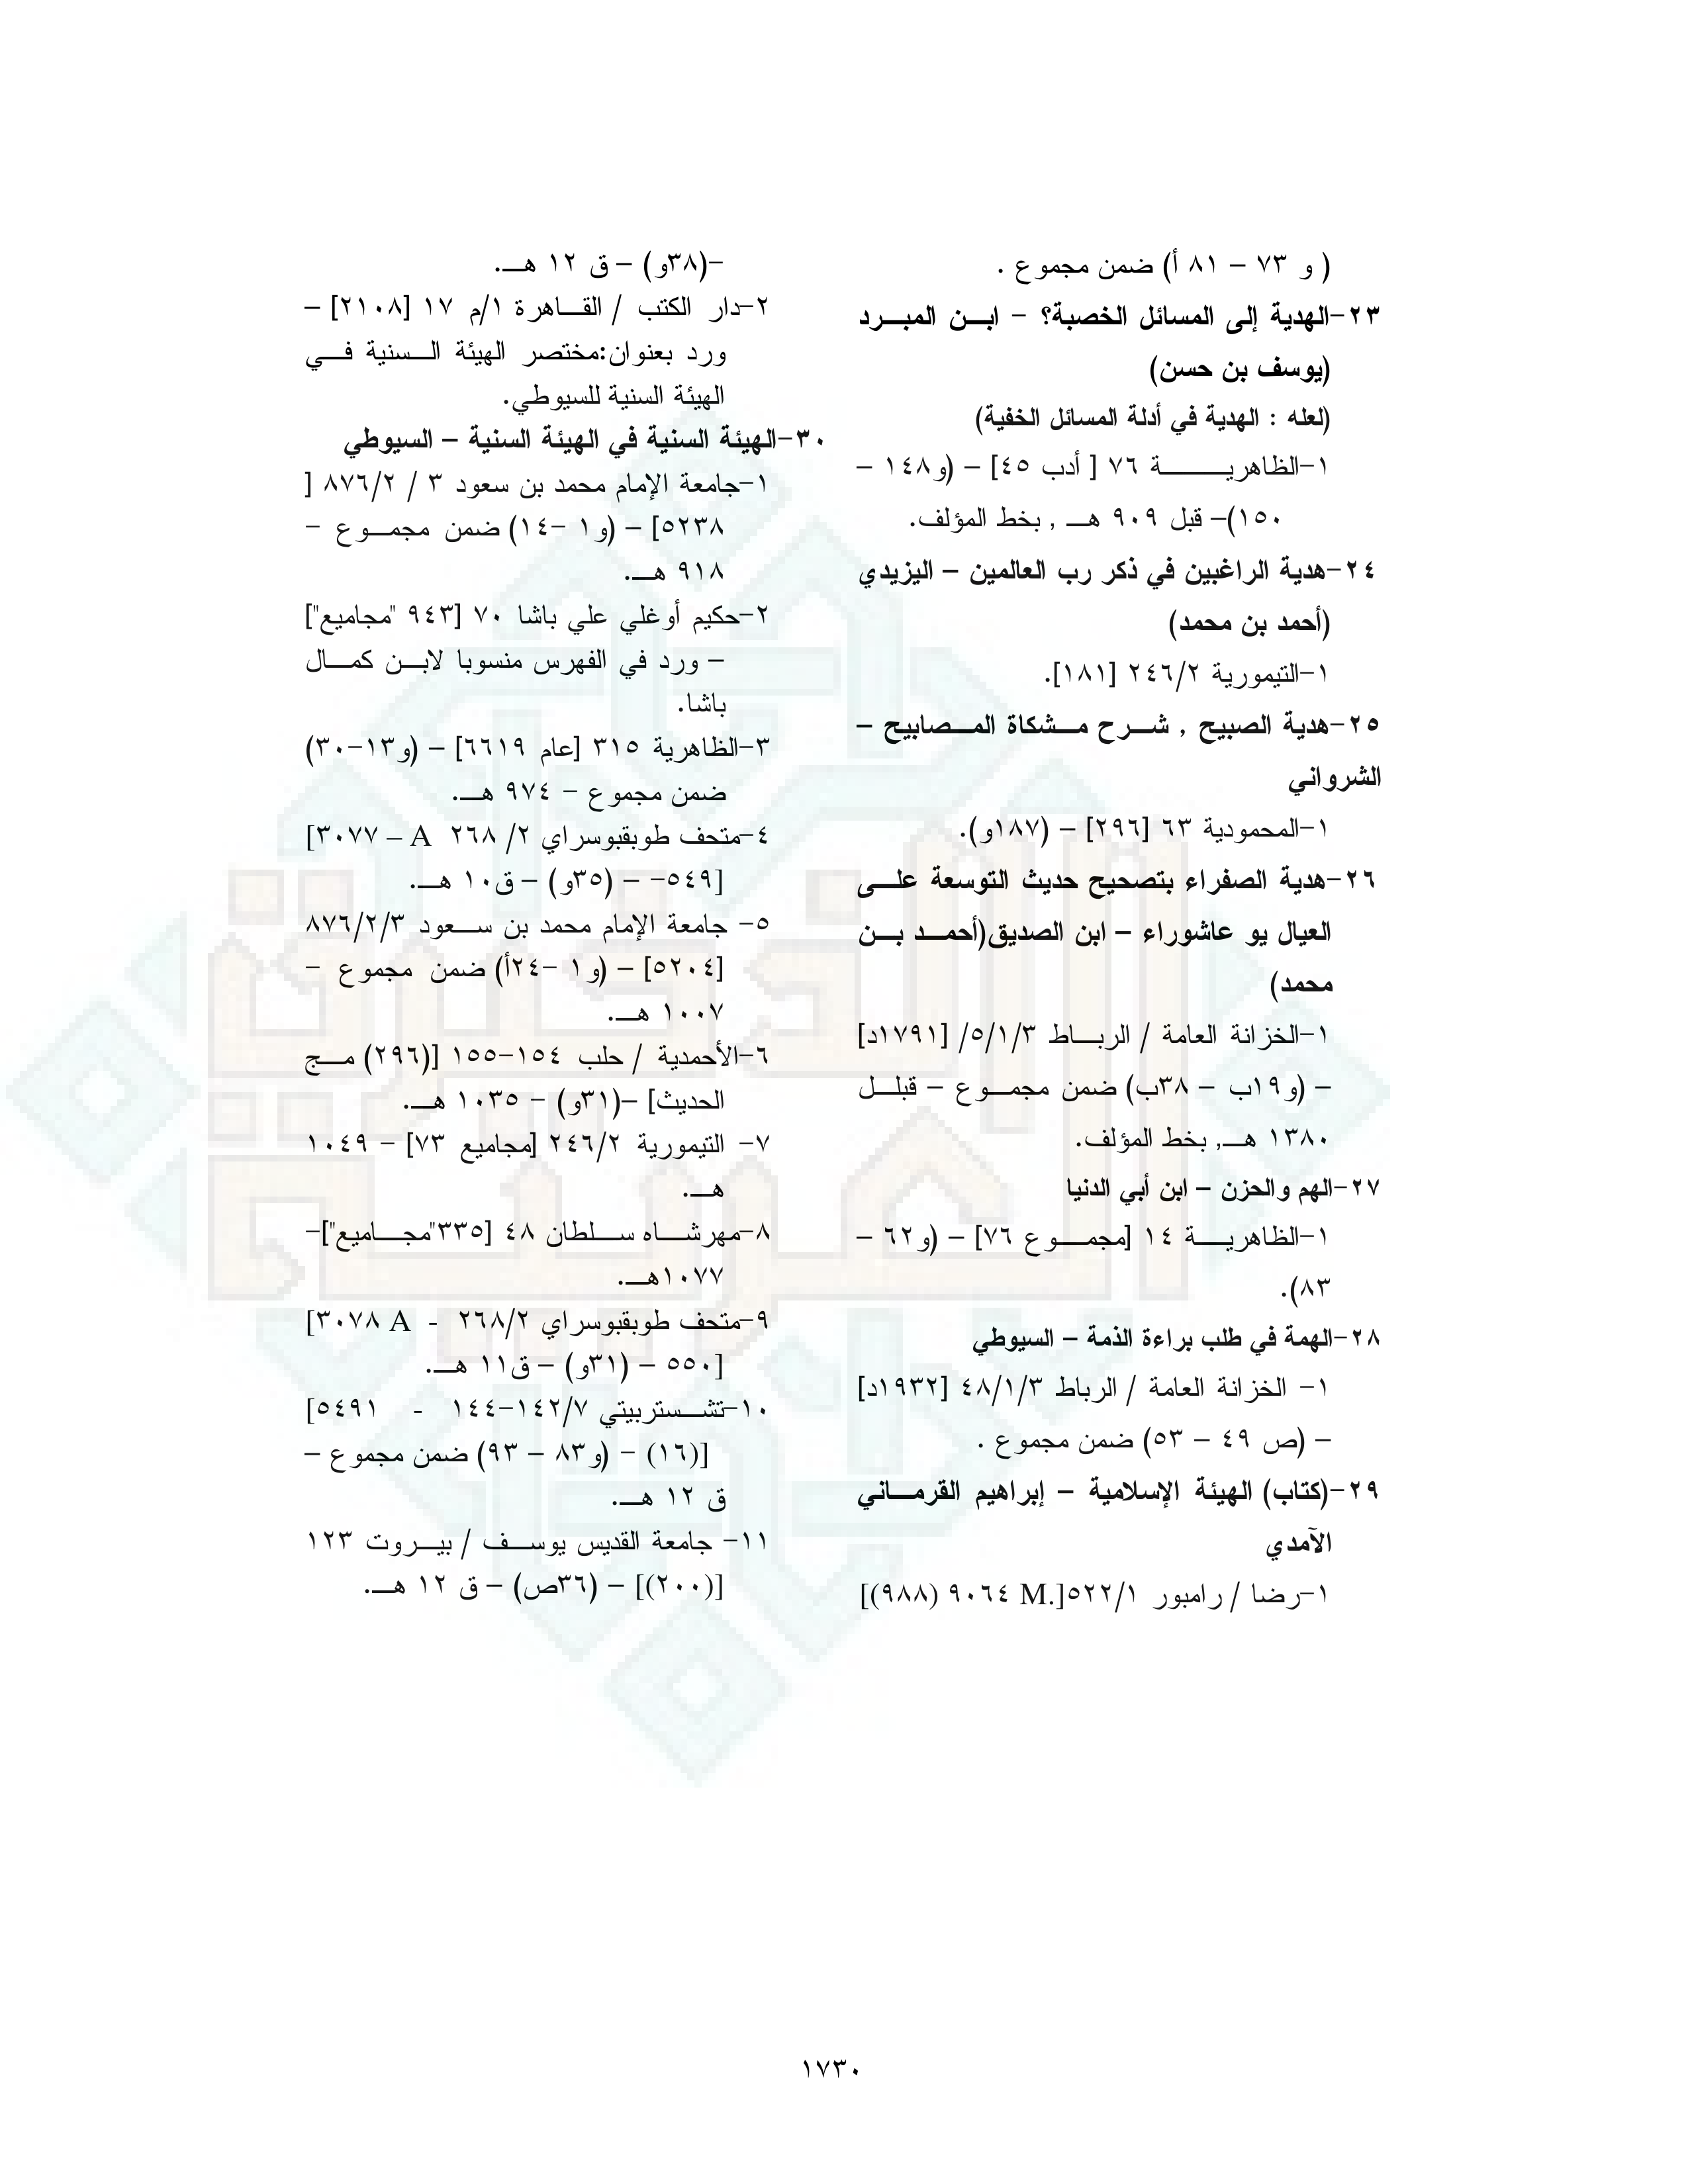 ( و ٧٣ – ٨١ أ) ضمن مجموع .
٢٣-الهدية إلى المسائل الخصبة؟ - ابن المبرد
(يوسف بن حسن)
(لعله : الهدية في أدلة المسائل الخفية)
١-الظاهرية ٧٦ [ أدب ٤٥] – (و١٤٨ –
١٥٠)– قبل ٩٠٩ هـ , بخط المؤلف.
٢٤-هدية الراغبين في ذكر رب العالمين – اليزيدي
(أحمد بن محمد)
١-التيمورية ٢٤٦/٢ [١٨١].
٢٥-هدية الصبيح , شرح مشكاة المصابيح –
الشرواني
١-المحمودية ٦٣ [٢٩٦] – (١٨٧و).
٢٦-هدية الصفراء بتصحيح حديث التوسعة على
العيال يو عاشوراء – ابن الصديق(أحمد بن
محمد)
١-الخزانة العامة / الرباط ٥/١/٣/ [١٧٩١د]
– (و١٩ب – ٣٨ب) ضمن مجموع – قبل
١٣٨٠ هـ, بخط المؤلف.
٢٧-الهم والحزن – ابن أبي الدنيا
١-الظاهرية ١٤ [مجموع ٧٦] – (و٦٢ –
٨٣).
٢٨-الهمة في طلب براءة الذمة – السيوطي
١- الخزانة العامة / الرباط ٤٨/١/٣ [١٩٣٢د]
– (ص ٤٩ – ٥٣) ضمن مجموع .
٢٩-(كتاب) الهيئة الإسلامية – إبراهيم القرماني
الآمدي
١-رضا / رامبور ٥٢٢/١[.M ٩٠٦٤ (٩٨٨)]
-(٣٨و) – ق ١٢ هـ.
٢-دار الكتب / القاهرة ١/م ١٧ [٢١٠٨] –
ورد بعنوان:مختصر الهيئة السنية في
الهيئة السنية للسيوطي.
٣٠-الهيئة السنية في الهيئة السنية – السيوطي
١-جامعة الإمام محمد بن سعود ٣ / ٨٧٦/٢ [
٥٢٣٨] – (و١ -١٤) ضمن مجموع -
٩١٨ هـ.
٢-حكيم أوغلي علي باشا ٧٠ [٩٤٣ "مجاميع"]
– ورد في الفهرس منسوبا لابن كمال
باشا.
٣-الظاهرية ٣١٥ [عام ٦٦١٩] – (و١٣-٣٠)
ضمن مجموع - ٩٧٤ هـ.
٤-متحف طوبقبوسراي ٢/ ٢٦٨ A – ٣٠٧٧]
[٥٤٩- – (٣٥و) – ق١٠ هـ.
٥- جامعة الإمام محمد بن سعود ٨٧٦/٢/٣
[٥٢٠٤] – (و١ -٢٤أ) ضمن مجموع -
١٠٠٧ هـ.
٦-الأحمدية / حلب ١٥٤-١٥٥ [(٢٩٦) مج
الحديث] –(٣١و) - ١٠٣٥ هـ.
٧- التيمورية ٢٤٦/٢ [مجاميع ٧٣] - ١٠٤٩
هـ.
٨-مهرشاه سلطان ٤٨ [٣٣٥"مجاميع"]-
١٠٧٧هـ.
٩-متحف طوبقبوسراي ٢٦٨/٢ - A ٣٠٧٨]
[٥٥٠ – (٣١و) – ق١١ هـ.
١٠-تشستربيتي ١٤٢/٧-١٤٤ - ٥٤٩١]
[(١٦) - (و٨٣ – ٩٣) ضمن مجموع –
ق ١٢ هـ.
١١- جامعة القديس يوسف / بيروت ١٢٣
[(٢٠٠)] – (٣٦ص) – ق ١٢ هـ.
١٧٣٠